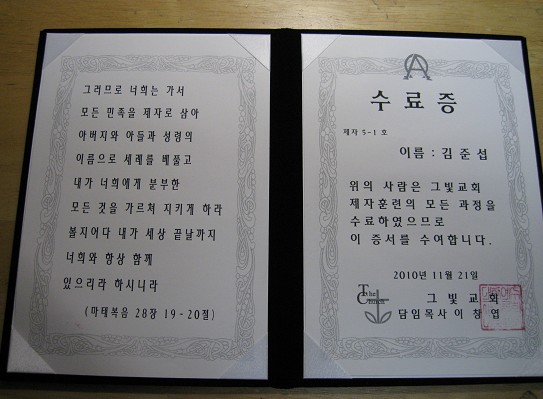 그러므로 너희는 가서
모든 민족을 제자로 삼아
아버지와 아들과 성령의
이름으로 세례를 베풀고
내가 너희에게 분부한
모든 것을 가르쳐 지키게 하라
볼지어다 내가 세상 끝날까지
너희와 항상 함께
있으리라 하시니라
(마태복음 28장 19-20절)
수료증
제자 5-1 호
이름 : 김준섭
위의 사람은 그빛교회
제자훈련의 모든 과정을
수료하였으므로
이 증서를 수여합니다.
2010년 11월 21일
The Church
그 빛 교 회
담임목사 이 창 엽